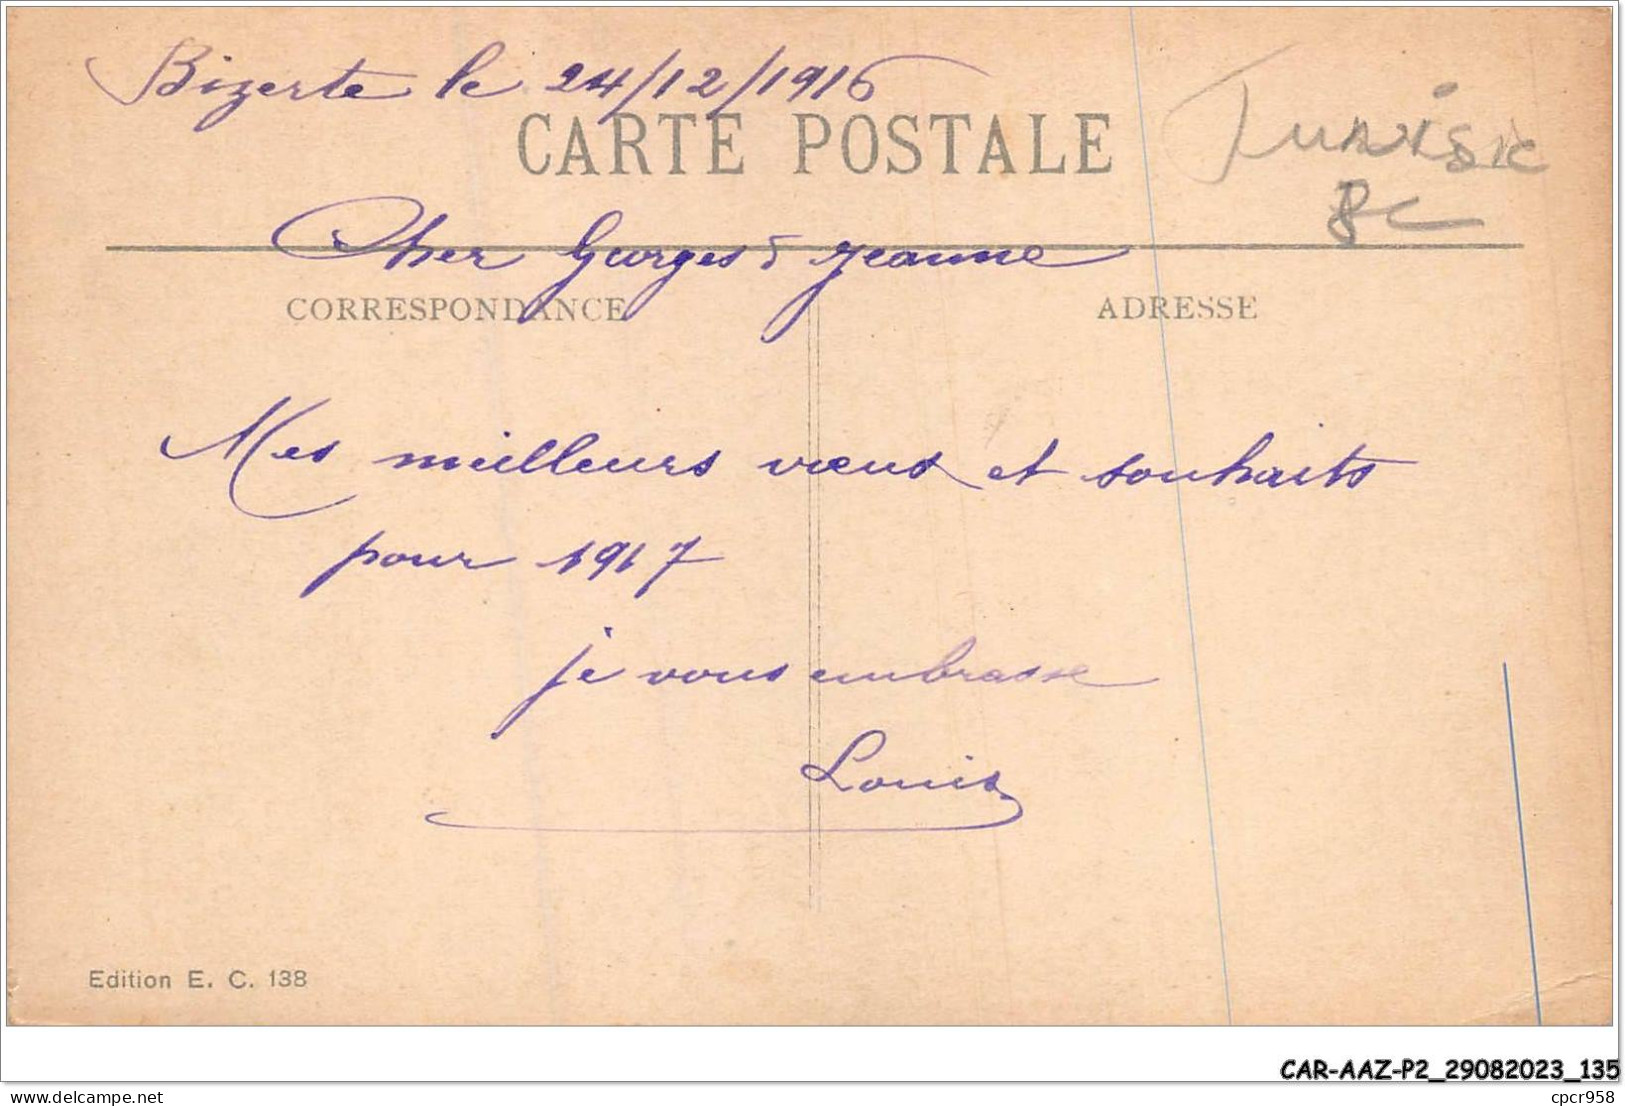 Bizerte le 24/12/1916
CARTE POSTALE
Tunisie
Cher Georges & Jeanne
CORRESPONDANCE
ADRESSE
Mes meilleurs vœux et souhaits
pour 1917
je vous embrasse
Louis
Edition E. C. 138
CAR-AAZ-P2_29082023_135
delcampe.net
cpcr958